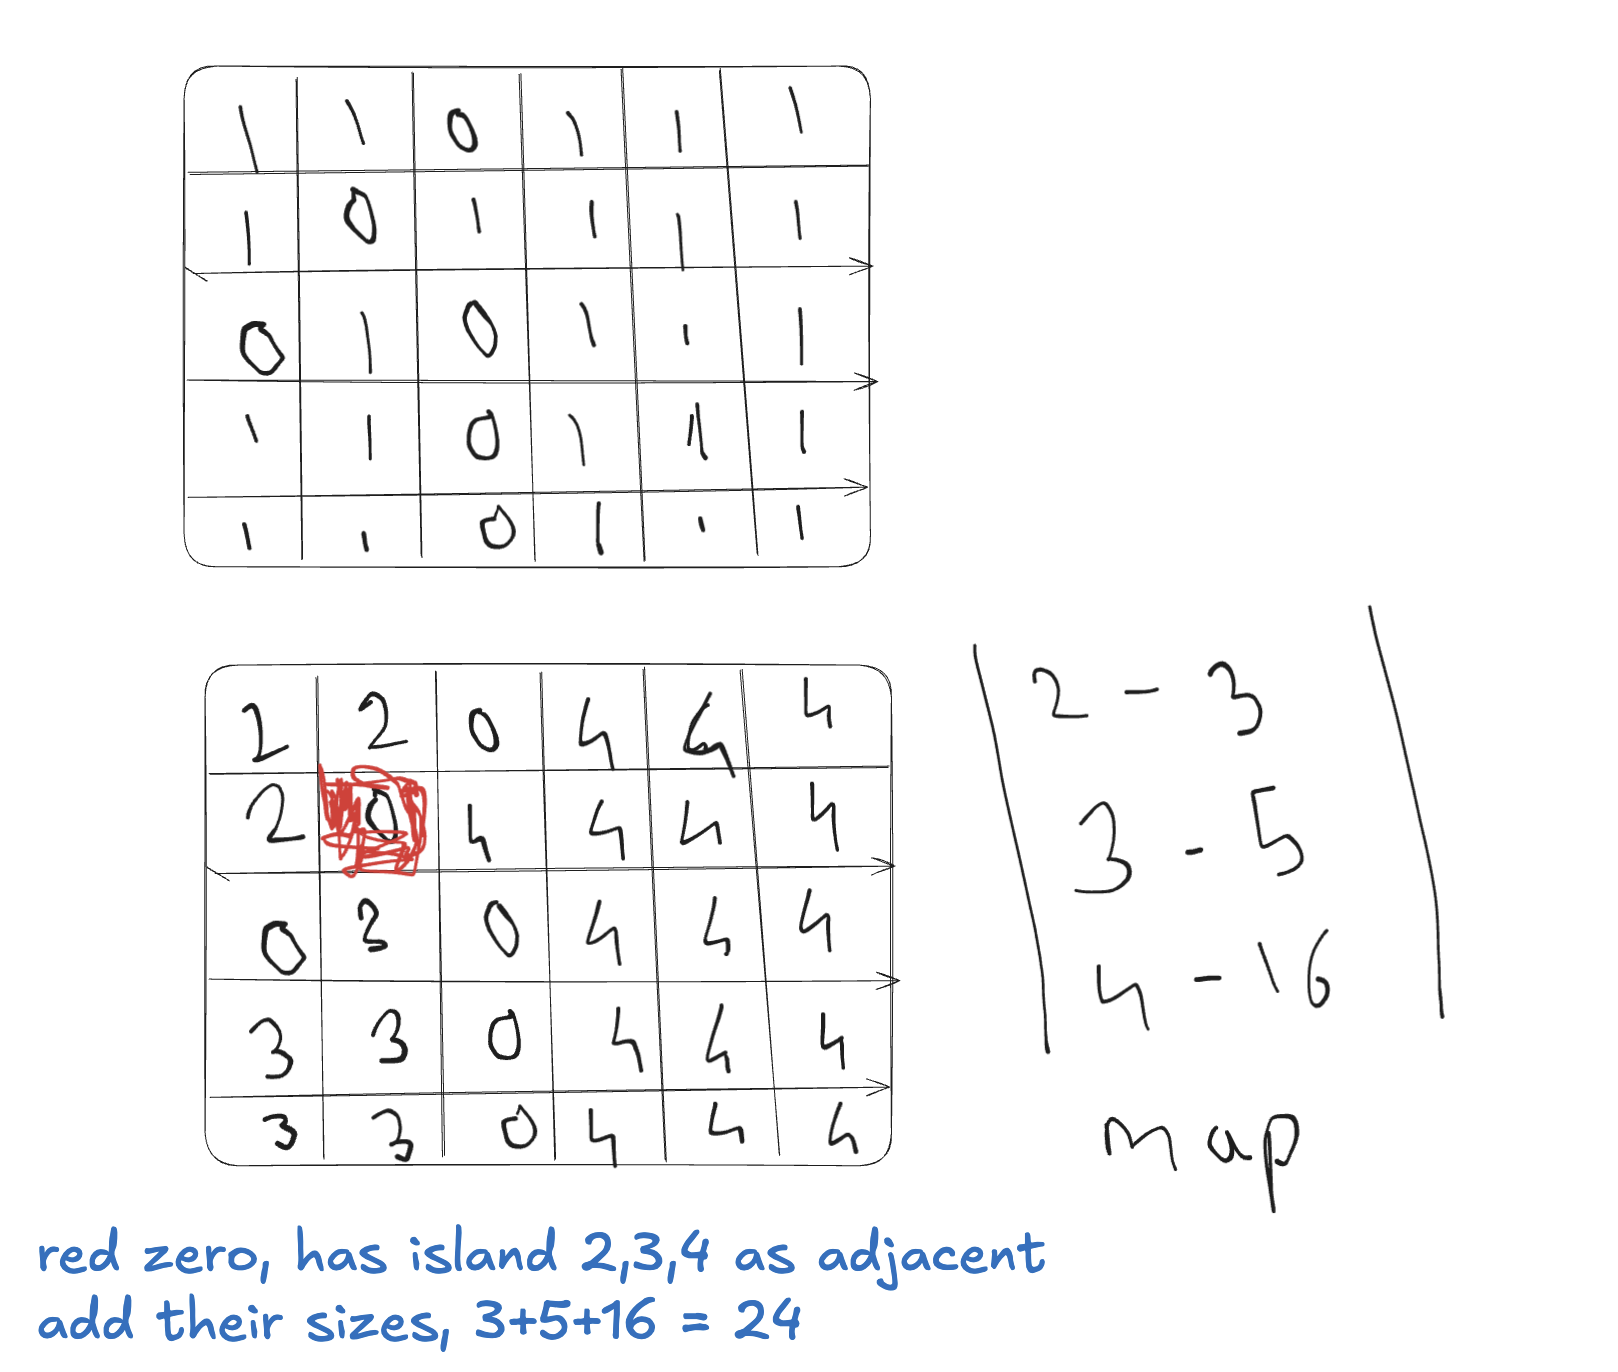 1 1 0 1 1 1
1 0 1 1 1 1
0 1 0 1 1 1
1 1 0 1 1 1
1 1 0 1 1 1
2 2 0 4 4 4
2 0 4 4 4 4
0 3 0 4 4 4
3 3 0 4 4 4
3 3 0 4 4 4
2 - 3
3 - 5
4 - 16
map
red zero, has island 2,3,4 as adjacent
add their sizes, 3+5+16 = 24